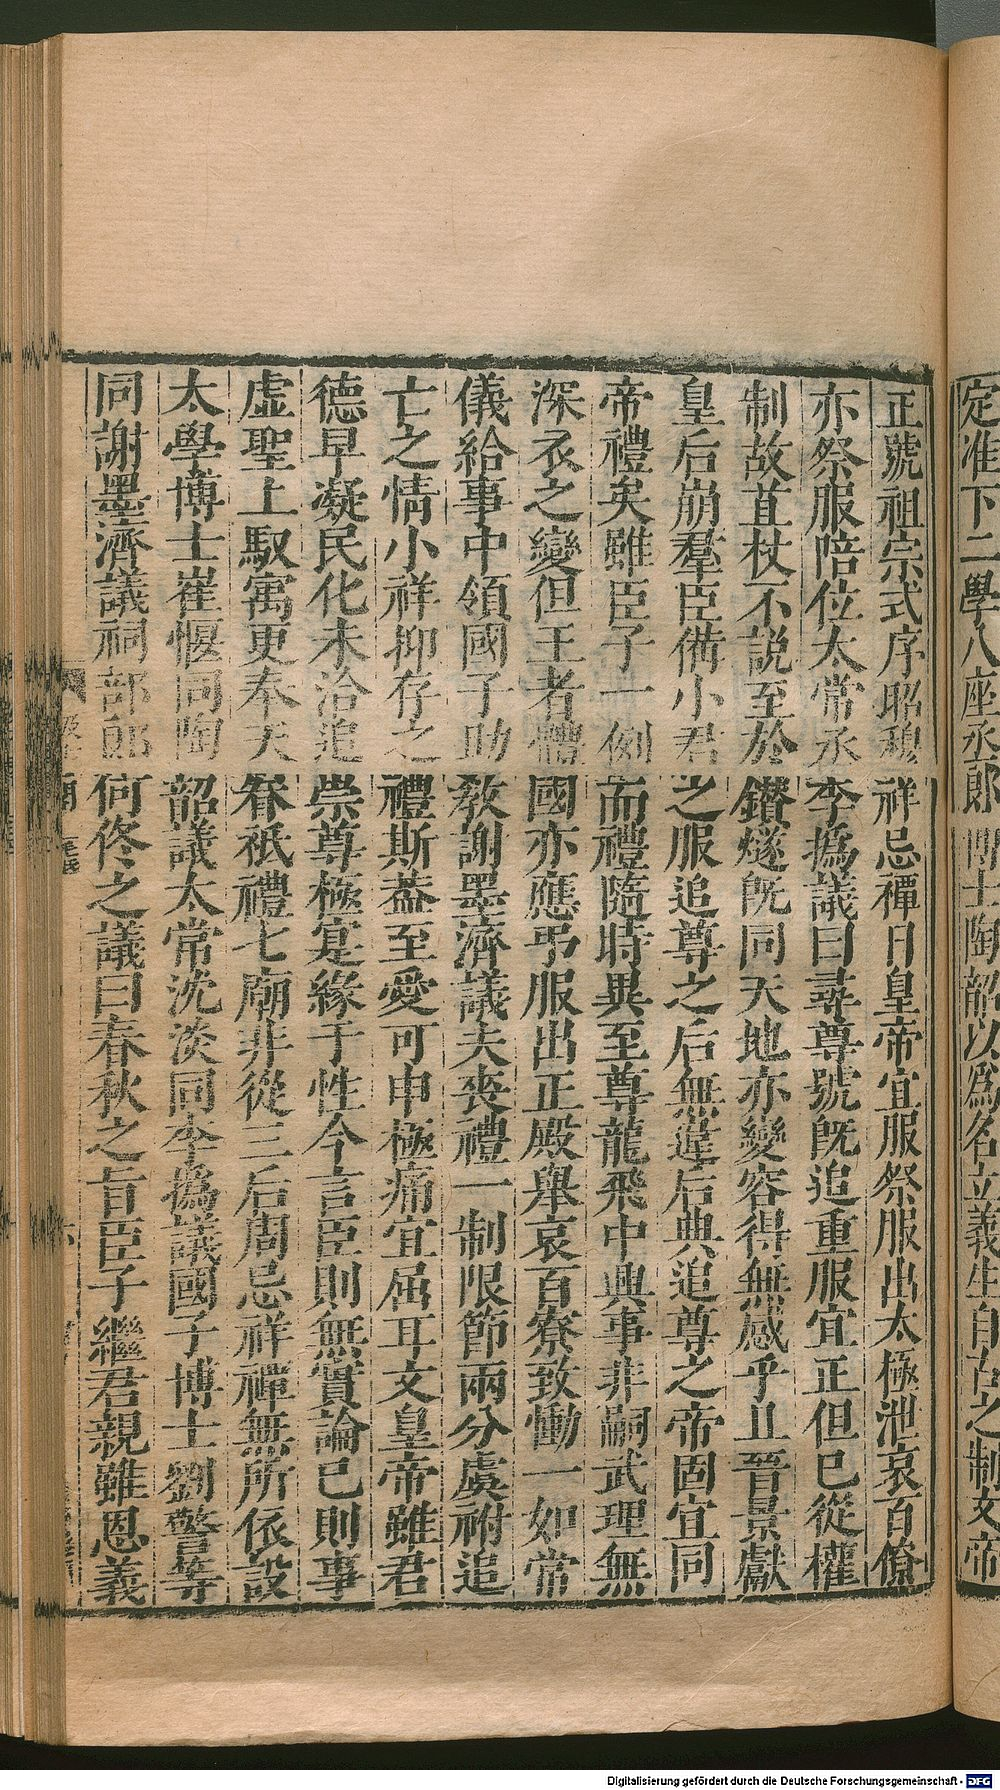 定准下二學八座丞郎博士陶韶以爲名立義生自古之制文帝
正號祖宗式序昭穆祥忌禫日皇帝宜服祭服出太極泄哀百僚
亦祭服陪位太常丞李撝議曰尋尊號旣追重服宜正但已從權
制故苴杖不說至於鑚燧旣同天地亦變容得無感乎且晉景獻
皇后崩羣臣備小君之服追尊之后無違后典追尊之帝固宜同
帝禮矣雖臣子一例而禮隨時異至尊龍飛中興事非嗣武理無
深衣之變但王者體國亦應弔服出正殿舉哀百寮致慟一如常
儀給事中領國子助敎謝墨濟議夫喪禮一制限節兩分虞祔追
亡之情小祥抑存之禮斯蓋至愛可申極痛宜屈耳文皇帝雖君
德早凝民化未洽追崇尊極寔緣于性今言臣則無實論已則事
虛聖上馭寓更奉天眷祇禮七廟非從三后周忌祥禫無所依設
太學博士崔愝同陶韶議太常沈淡同李撝議國子博士劉警等
同謝墨濟議祠部郎何佟之議曰春秋之旨臣子繼君親雖恩義
Digitalisierung gefördert durch die Deutsche Forschungsgemeinschaft - DFG